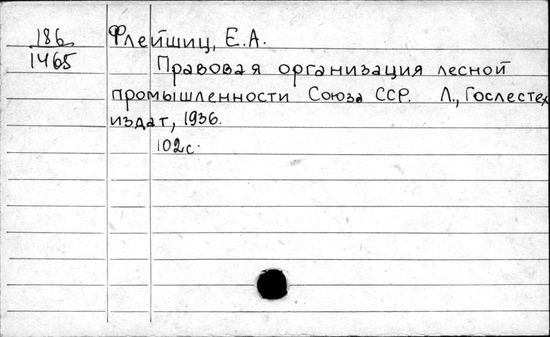 186
1465
Флейшиц, Е.А.
Правовая организация лесной
промышленности Союза ССР. Л., Гослестех
издат, 1936.
102с.